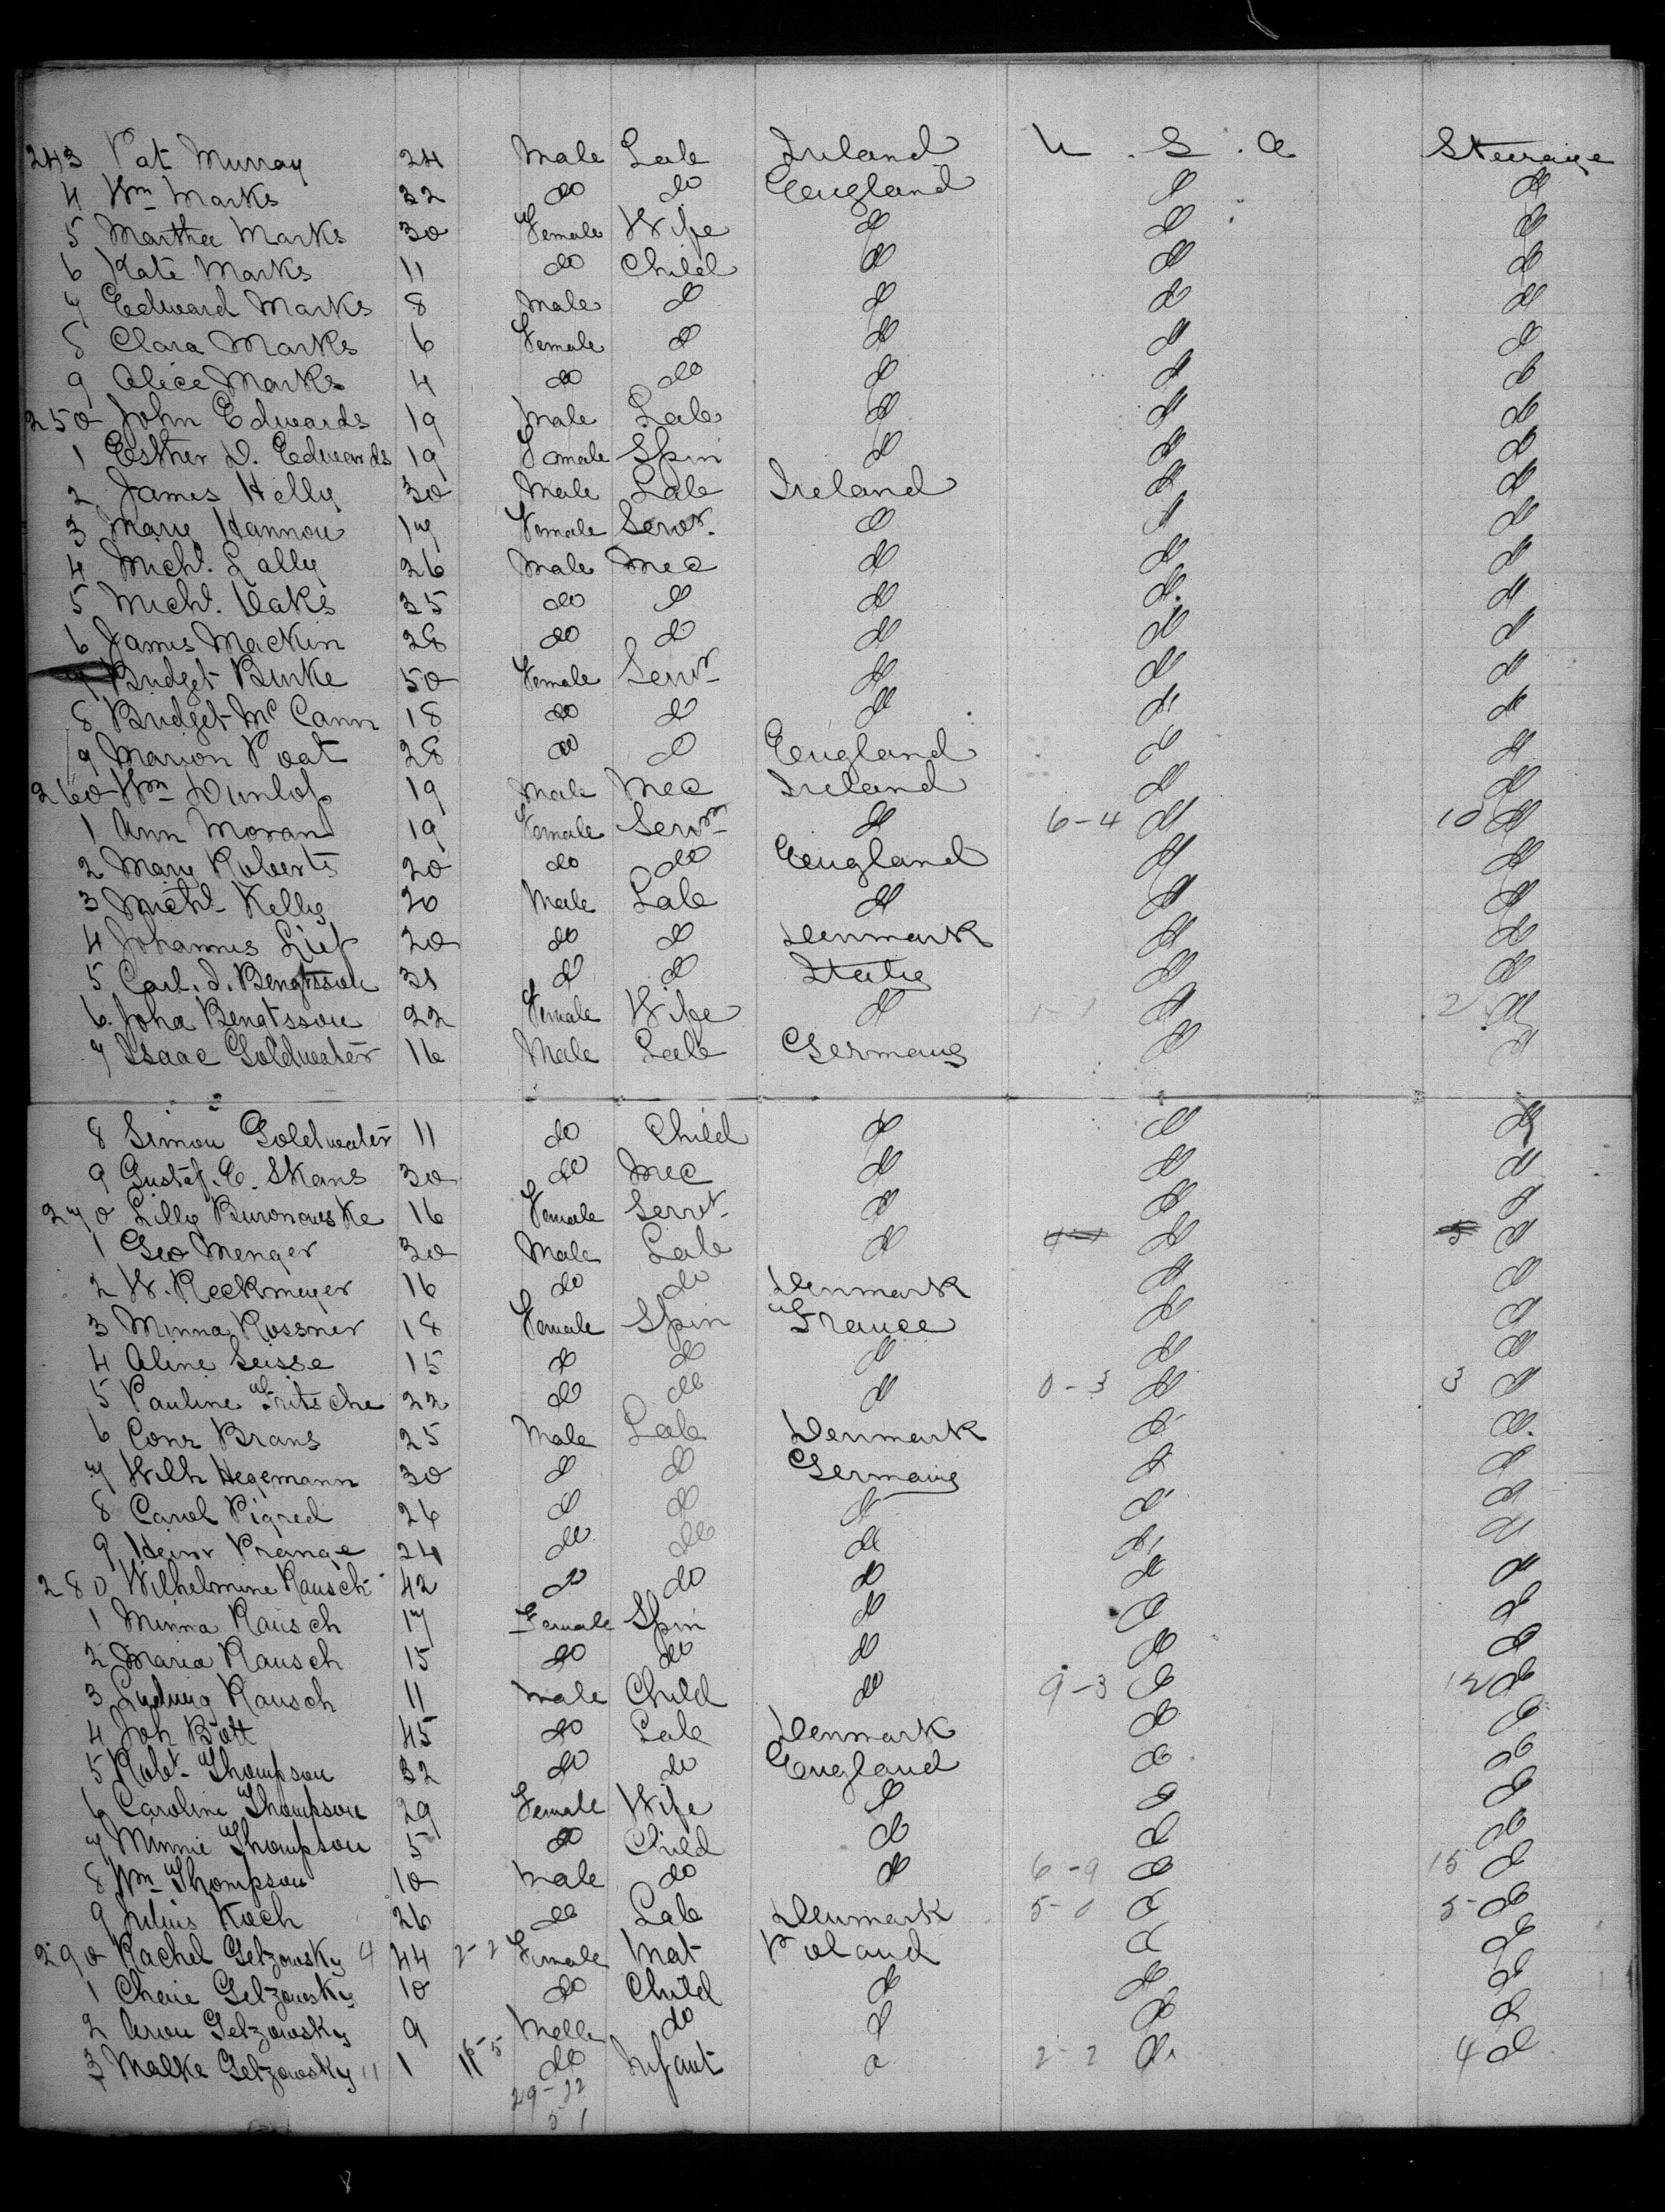 243 Pat Murray 24 Male Lab Ireland U . S . A Steerage
4 Wm Marks 32 do do England do do
5 Martha Marks 30 Female Wife do do do
6 Kate Marks 11 do Child do do do
7 Edward Marks 8 Male do do do do
8 Clara Marks 6 Female do do do do
9 Alice Marks 4 do do do do do
250 John Edwards 19 Male Lab do do do
1 Esther D. Edwards 19 Female Spin do do do
2 James Kelly 30 Male Lab Ireland do do
3 Mary Hannon 17 Female Servt. do do do
4 Michl. Lally 26 Male Mec do do do
5 Michl. Oaks 25 do do do do do
6 James Mackin 28 do do do do do
7 Bridget Burke 50 Female Servt do do do
8 Bridget Mc Cann 18 do do do do do
9 Marion Poat 28 do do England do do
260 Wm Dunlop 19 Male Mec Ireland do do
1 Ann Moran 19 Female Servt do 6-4 do 10 do
2 Mary Roberts 20 do do England do do
3 Michl Kelly 20 Male Lab do do do
4 Johannes 20 do do Denmark do do
5 Carl. J. Bengtsson 31 do do Italy do do
6 Joha Bengtsson 22 Female Wife do 1-1 do 2 do
7 Isaac Goldwater 16 Male Lab Germany do do
8 Simon Goldwater 11 do Child do do do
9 Gustaf. E. Skans 30 do Mec do do do
270 Lilly Buronowske 16 Female Servt do do do
1 Geo Menger 30 Male Lab do do do
2 W. Reckmeyer 16 do do Denmark do do
3 Minna Rossner 18 Female Spin France do do
4 Aline Seisse 15 do do do do do
5 Pauline Fritsche 22 do do do 0-3 do 3 do
6 Conr Brans 25 Male Lab Denmark do do
7 Wilh Hegemann 30 do do Germany do do
8 Carol Pigred 26 do do do do do
9 Heinr Prange 24 do do do do do
280 Wilhelmine Rausch 42 do do do do do
1 Minna Rausch 17 Female Spin do do do
2 Maria Rausch 15 do do do do do
3 Ludwig Rausch 11 Male Child do 9-3 do 12 do
4 Joh Bott 45 do Lab Denmark do do
5 Robt Thompson 32 do do England do do
6 Caroline Thompson 29 Female Wife do do do
7 Minnie Thompson 5 do Child do do do
8 Wm Thompson 10 Male do do 6-9 do 15 do
9 Julius Koch 26 do Lab Denmark 5-0 do 5 do
290 Rachel Gelzowsky 4 44 2-2 Female Mat Poland do do
1 Chaie Gelzowsky 10 do Child do do do
2 Aron Gelzowsky 9 Male do do do do
3 Malke Gelzowsky 11 1 do Infant do 2-2 do 4 do
29-22
51